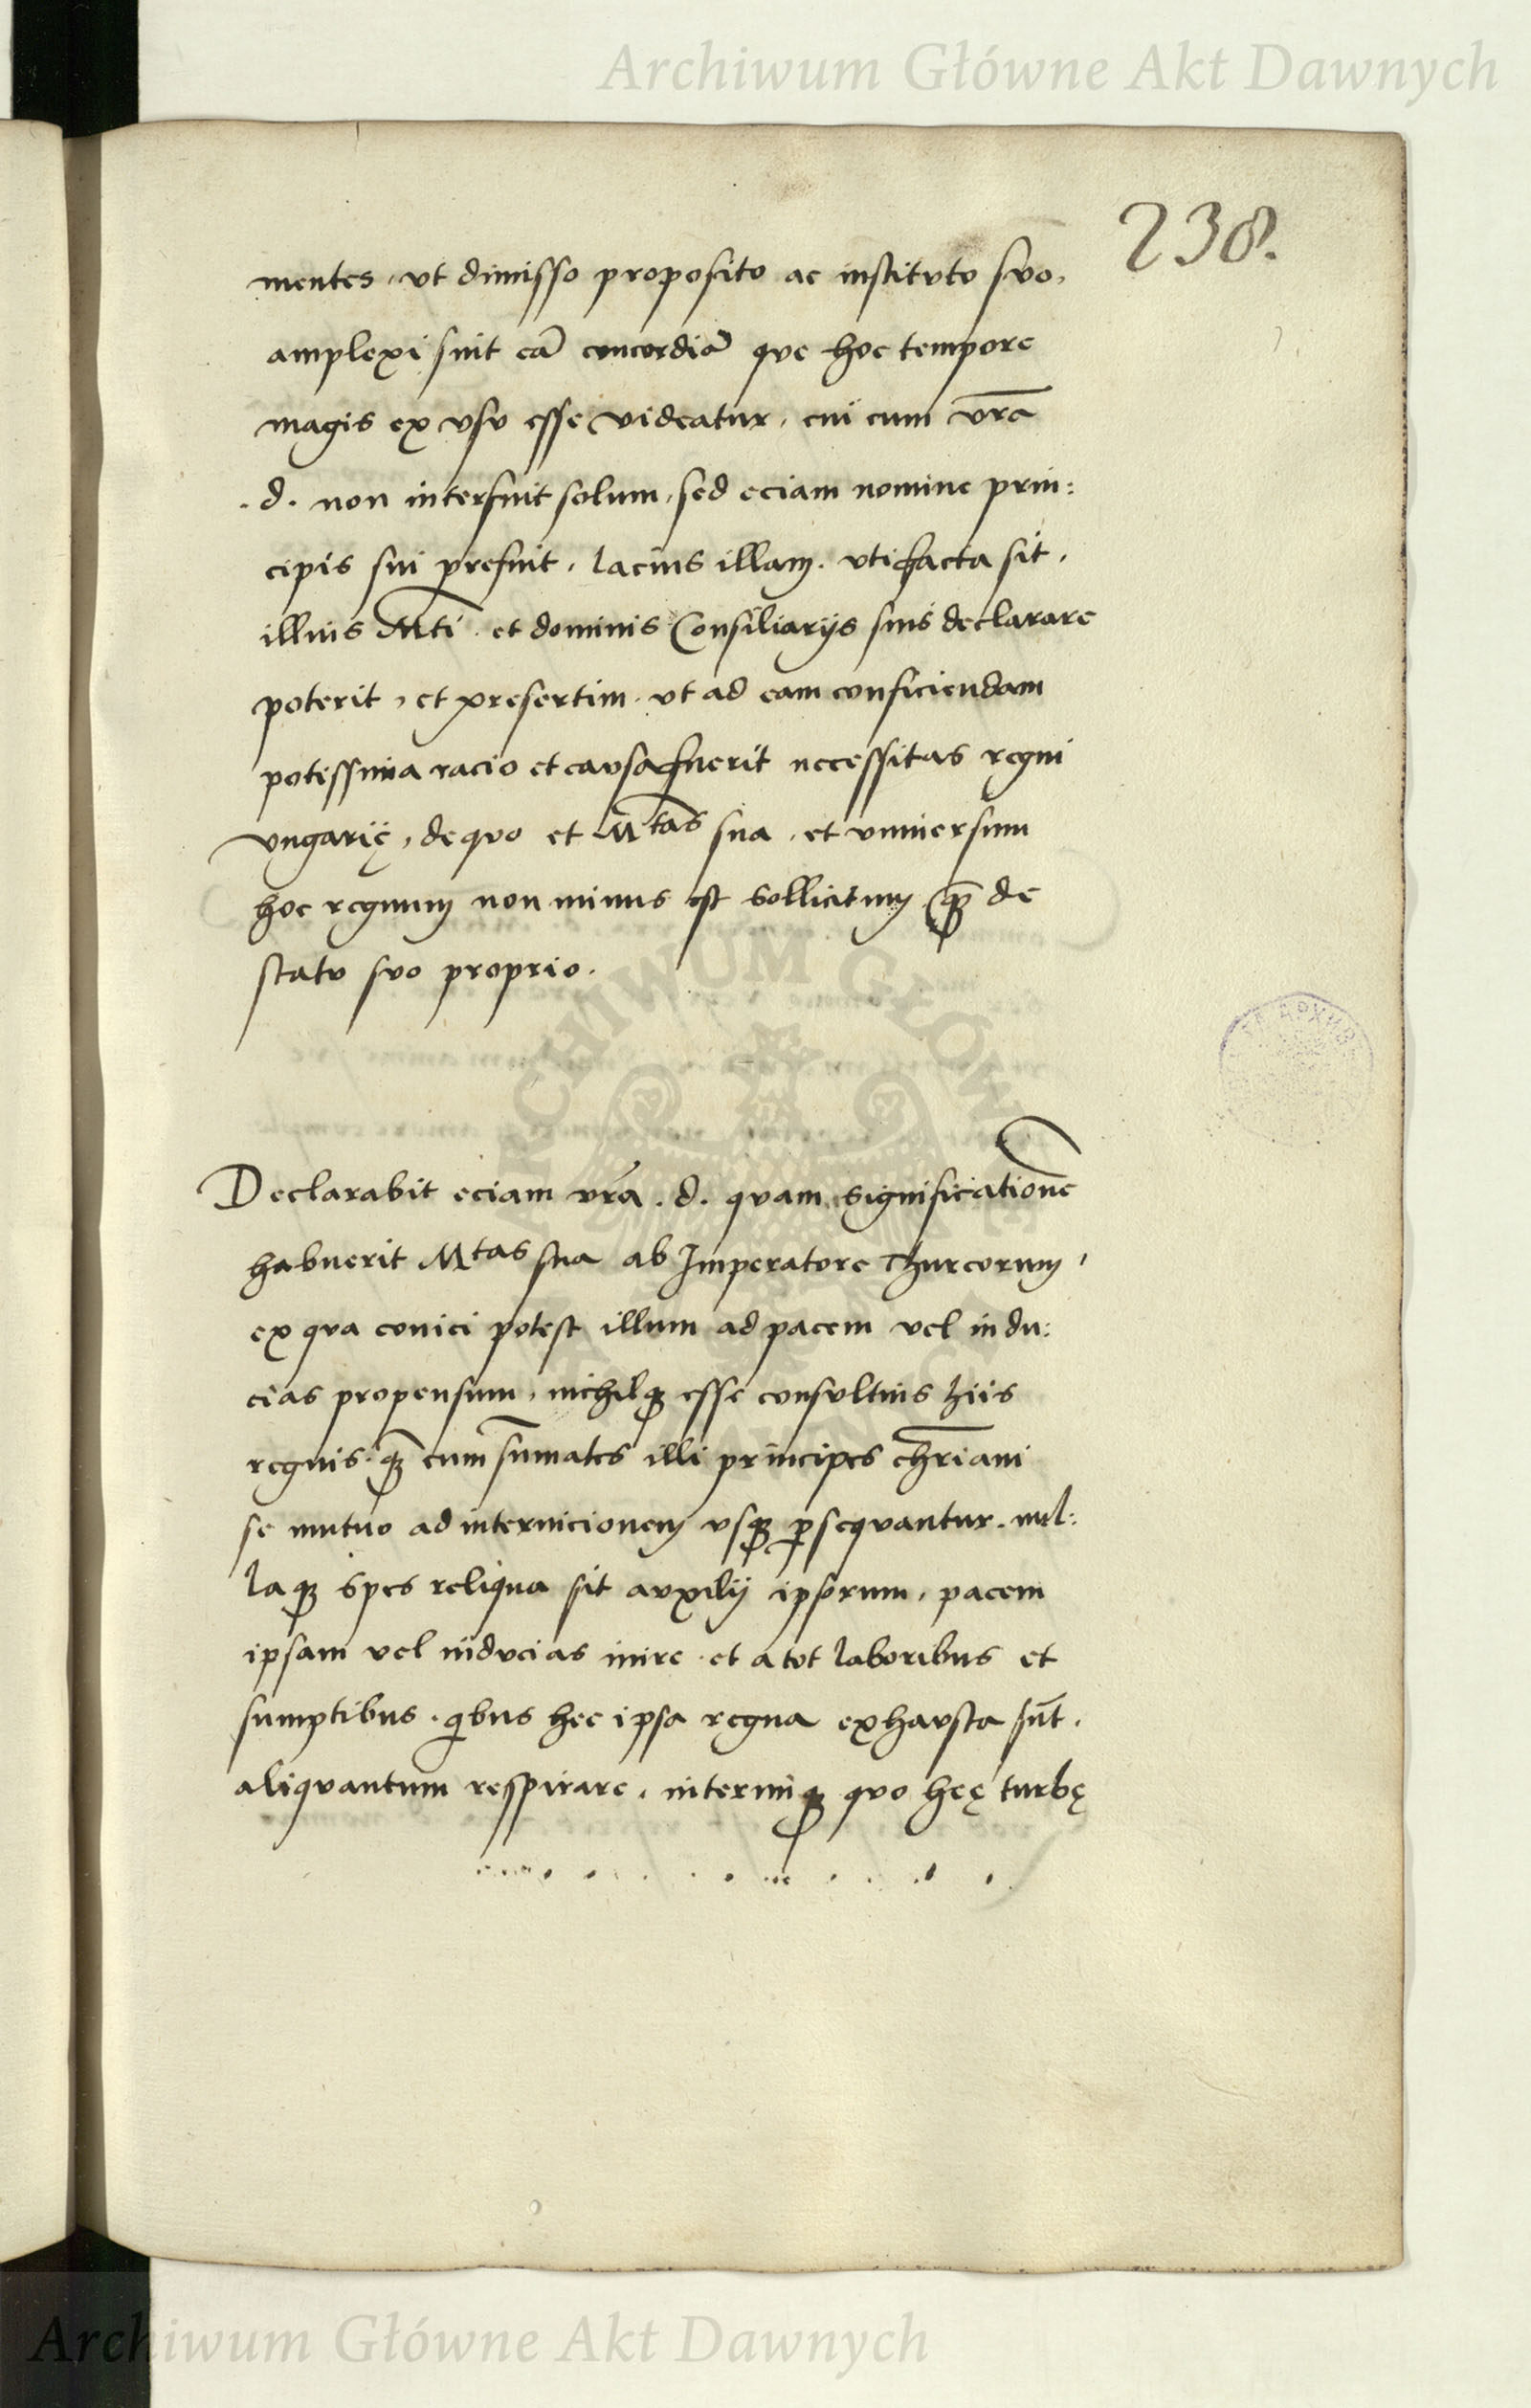 Archiwum Główne Akt Dawnych
238.
mentes, vt dimisso proposito ac institvto svo,
amplexi sint eã concordiã qve hoc tempore
magis ex vsv esse videatur, cui cum vr̃a
.d. non interfuit solum, sed eciam nomine prin:
cipis sui prefuit, lacius illam. vti facta sit,
illius Mti. et dominis Consiliarijs suis declarare
poterit, et presertim. vt ad eam conficiendam
potissima racio et cavsa fuerit necessitas regni
vngarię, de qvo et Mtas sua, et vniuersum
hoc regnum non minus est sollicitum, q̃ de
statv svo proprio.
Declarabit eciam vr̃a .d. qvam significationẽ
habuerit Mtas sua ab Imperatore Thurcorum,
ex qva conici potest illum ad pacem vel indu:
cias propensum, nichilq; esse consvltius hiis
regnis. q̃ cum sum̃ates illi principes chr̃iani
se mutuo ad internicionem vsq; ꝑseqvantur. nul:
laq; spes reliqua sit avxilij ipsorum, pacem
ipsam vel indvcias inire. et a tot laboribus et
sumptibus. qibus hec ipsa regna exhavsta sũt,
aliqvantum respirare, interimq; qvo heę turbę
ARCHIWUM GŁÓWNE
Archiwum Główne Akt Dawnych